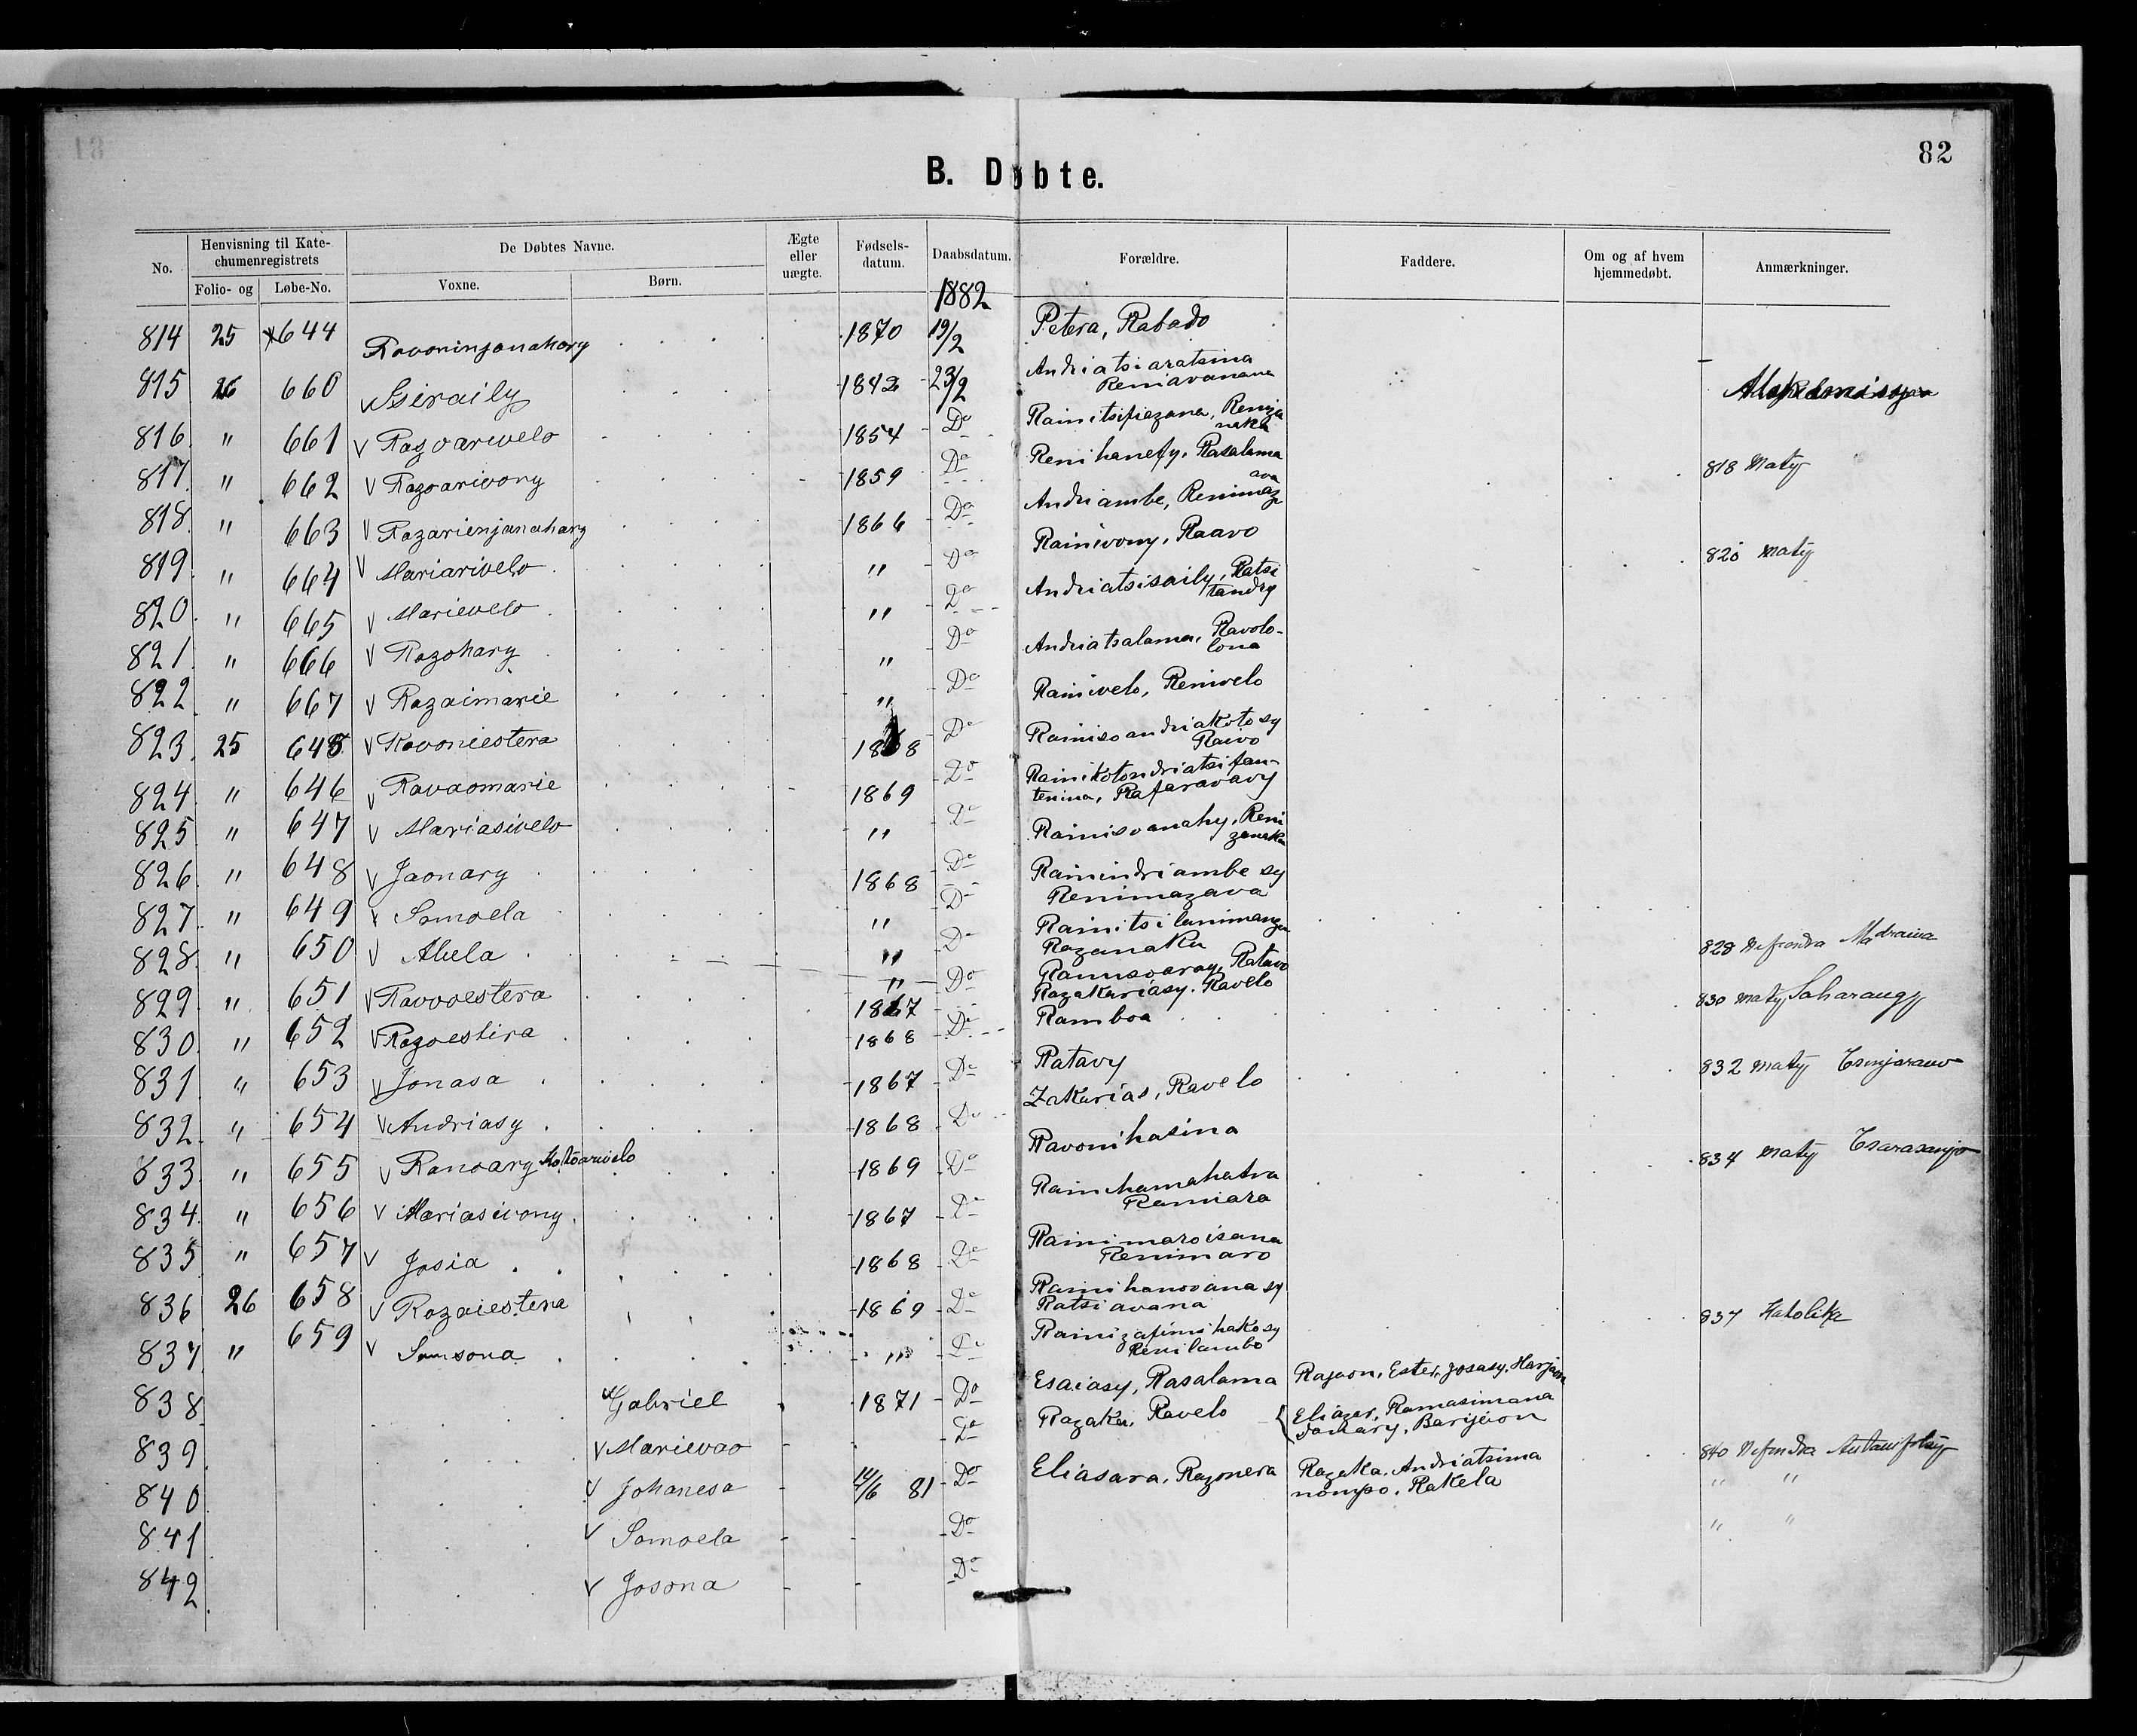 82
B. Døbte.
No. Henvisning til Katechumenregistrets De Døbtes Navne. Ægte eller uægte. Fødselsdatum. Daabsdatum. Forældre. Faddere. Om og af hvem hjemmedøbt. Anmærkninger.
Folio- og Løbe-No. Voxne. Børn.
1882
814 25 644 Ravoninjanahary 1870 19/2 Petera, Rabado
815 26 660 Israily 1842 23/2 Andriatsiaratsina Reniavanana
816 " 661 Razoarivelo 1854 Do Rainitsifiazana, Renizanaka
817 " 662 Razoarivony 1859 Do Renihanefy, Rasalama 818 Maty
818 " 663 Razarienjanahary 1866 Do Andriambe, Renimazava
819 " 664 Mariarivelo " Do Rainivony, Raavo 820 maty
820 " 665 Marievelo " Do Andriatsisaily, Ratsitandry
821 " 666 Razohary " Do Andriatsalama, Ravololona
822 " 667 Razaimarie " Do Rainivelo, Renivelo
823 25 645 Ravoniestera 1868 Do Rainisoandriakoto sy Raivo
824 " 646 Ravaomarie 1869 Do Rainikotondriatsifantenina, Rafaravavy
825 " 647 Mariasivelo " Do Rainisoanahy, Renizanaka
826 " 648 Jaonary 1868 Do Rainindriambe sy Renimazava
827 " 649 Samoela " Do Rainitsilanimanga
828 " 650 Abela " Do Razanaka 828 Nifrondra Madraiva
829 " 651 Ravvoestera " Do Rainisoaray, Ratavo
Razakariasy. Ravelo
830 " 652 Razoestira 1867 Ramboa 830 maty Saharangy
1868 Do
831 " 653 Jonasa 1867 Do Ratavy 832 maty Tsinjarano
832 " 654 Andriasy 1868 Do Zakarias, Ravelo
833 " 655 Ranoary Kotoarivelo 1869 Do Ravonihasina 834 maty Tsarasanjo
834 " 656 Mariasivony 1867 Do Rainihamahatra Ramiara
835 " 657 Josia 1868 Do Rainimaroisana Renimaro
836 26 658 Razaiestera 1869 Do Rainihanovana sy Ratsiavana
837 " 659 Samsona " Do Rainizafimihako sy Renilambo 837 Katolika
838 Gabriel 1871 Do Esaiasy, Rasalama Rajaon, Ester, Josasy, Marjam
839 Marievao Do Razaka, Ravelo Eliazer, Ramasimana
Barijaon
840 Johanesa 14/6 81 Do Eliasara, Razonera Razaka, Andriatsimanompo, Rakela 840 Nifindra Antanifotsy
841 Samoela Do " "
842 Josona Do " "